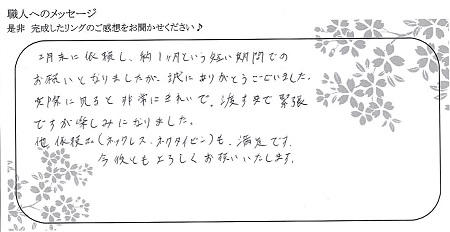 職人へのメッセージ
是非 完成したリングのご感想をお聞かせください♪
2月末に依頼し、約1ヶ月という短い期間での
お願いとなりましたが、誠にありがとうございました。
実際に見ると非常にきれいで、渡すまで緊張
ですが楽しみになりました。
他依頼品(ネックレス、ネクタイピン)も、満足です。
今後ともよろしくお願いいたします。